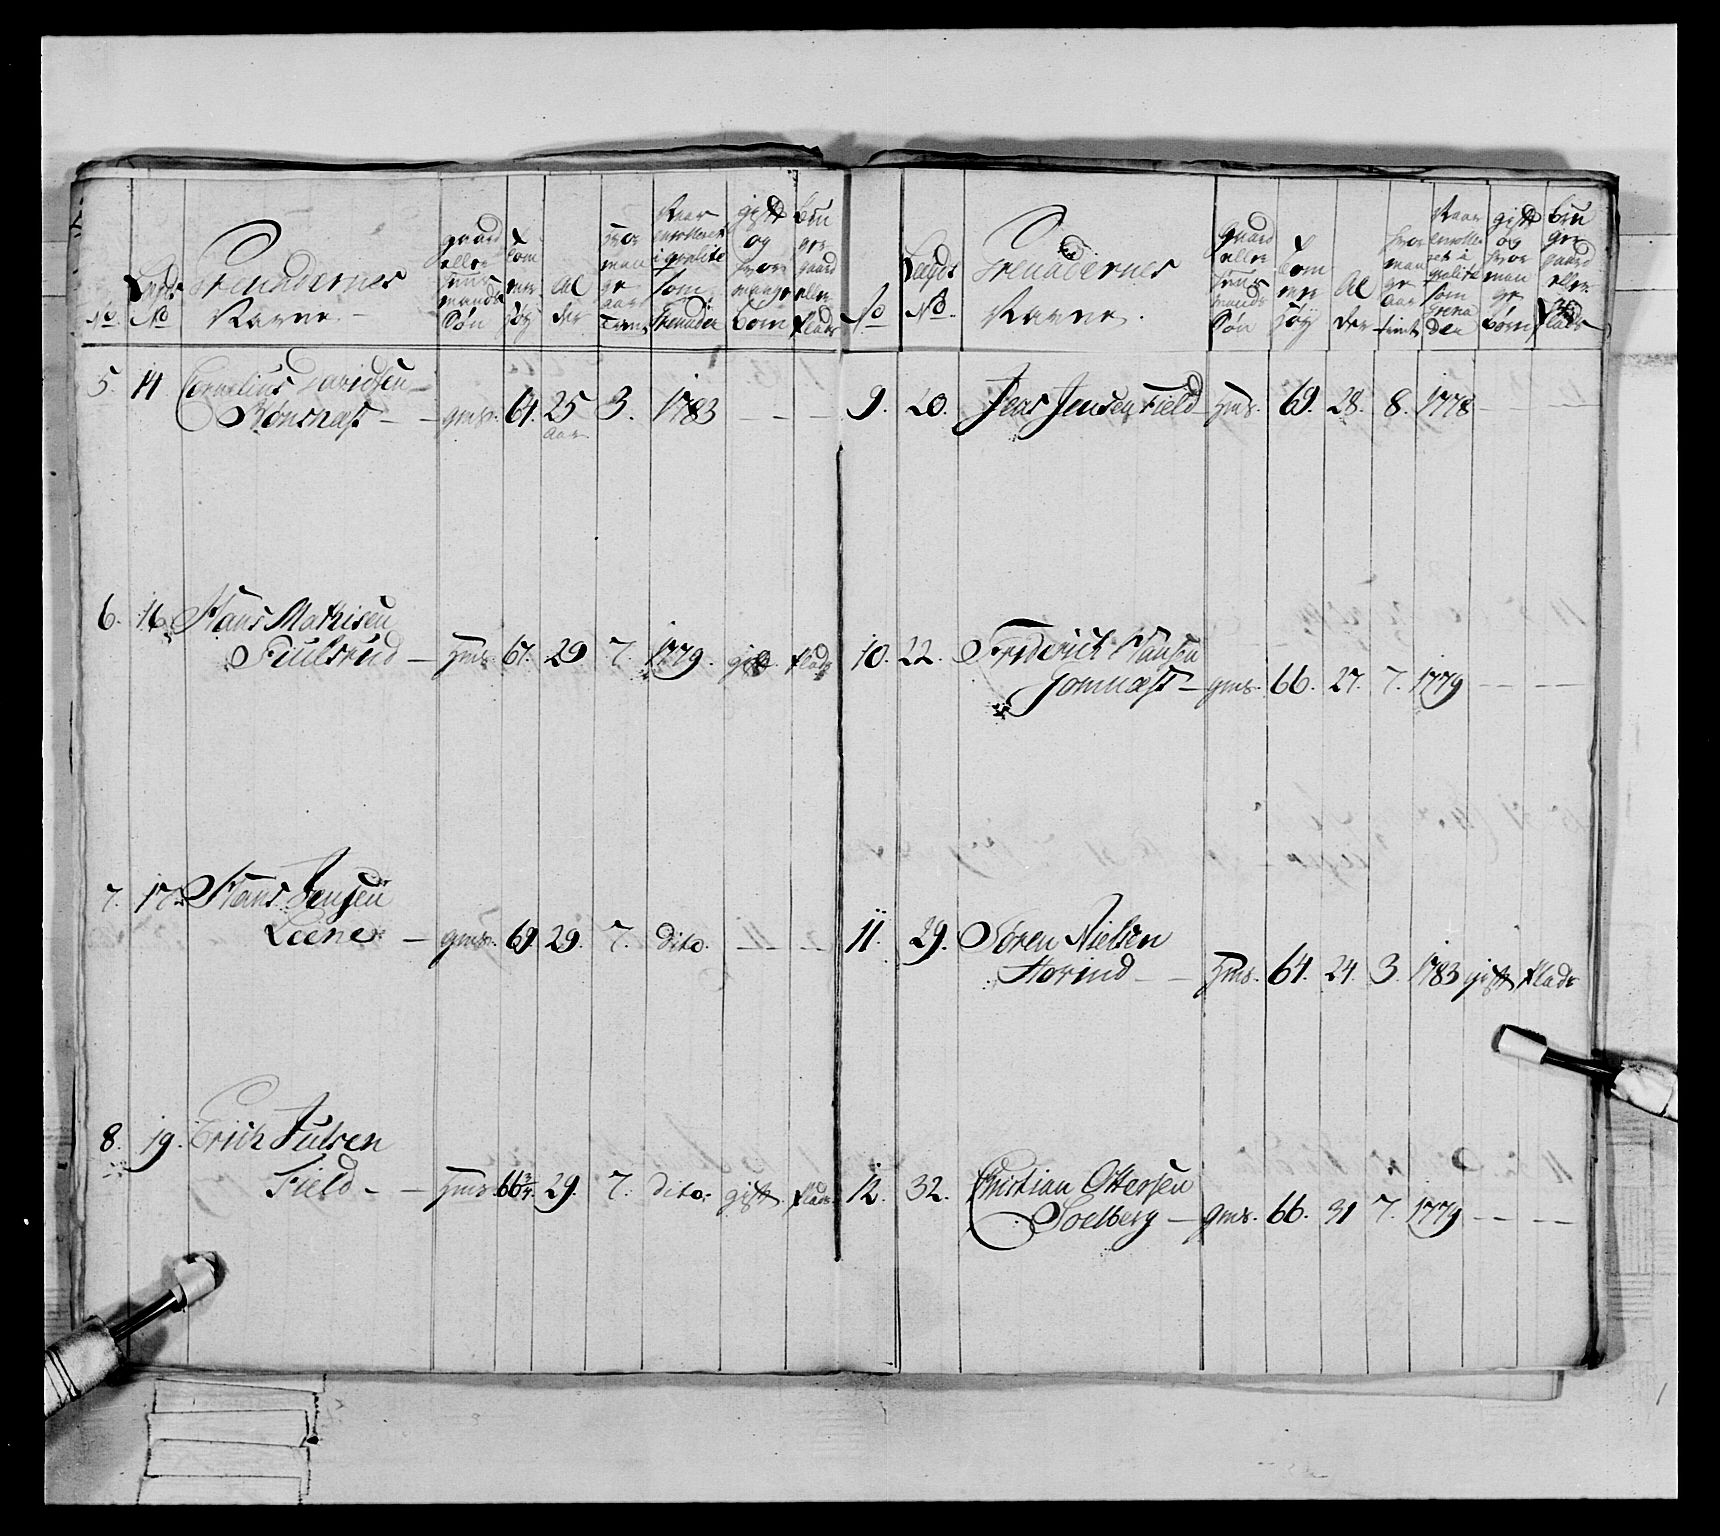 No.
Lægds No
Grenadernes Navne.
gaard eller Huusmands Søn
Tommer høy
Alder
hvormange aar tient
Naar enrolleret i gevalite som Grenader
gift og hvor mange Børn
Bruger gaard eller Plads
5. 14 Cornelius Davidsen
Rønsnæs — gms. 64. 25 aar 3. 1783 — —
6. 16. Hans Mathisen
Fiulsrud — hms. 67. 29 7. 1779. gift Plads
7. 17. Hans Jensen
Leene — gms. 69. 29. 7. dito. — —
8. 19. Erich Julsen
Field — hms. 66 3/4 29. 7. dito. gift Plads
No
Lægds No.
Grenadernes Navne.
gaard eller Huusmands Søn
Tommer høy
Alder
hvormange aar tient
Naar enrolleret i gevalite som Grenader
gift og hvor mange Børn
Bruger gaard eller Plads
9. 20. Jens Jensen Field hms. 69. 28. 8. 1778 — —
10. 22. Friderich Hansen
— gms. 66. 27. 7. 1779 — —
11. 29. Søren Nielsen
— hms. 64. 24. 3. 1783 gift Plads
12. 32. Christian Ottersen
Soelberg — gms. 66. 31 7. 1779 — —